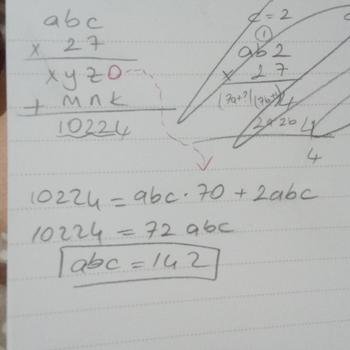 abc
x 27
xyz0
+ mnk
10224
c = 2
1
ab2
x 27
4
2a 2b 4
4
10224 = abc · 70 + 2abc
10224 = 72 abc
abc = 142